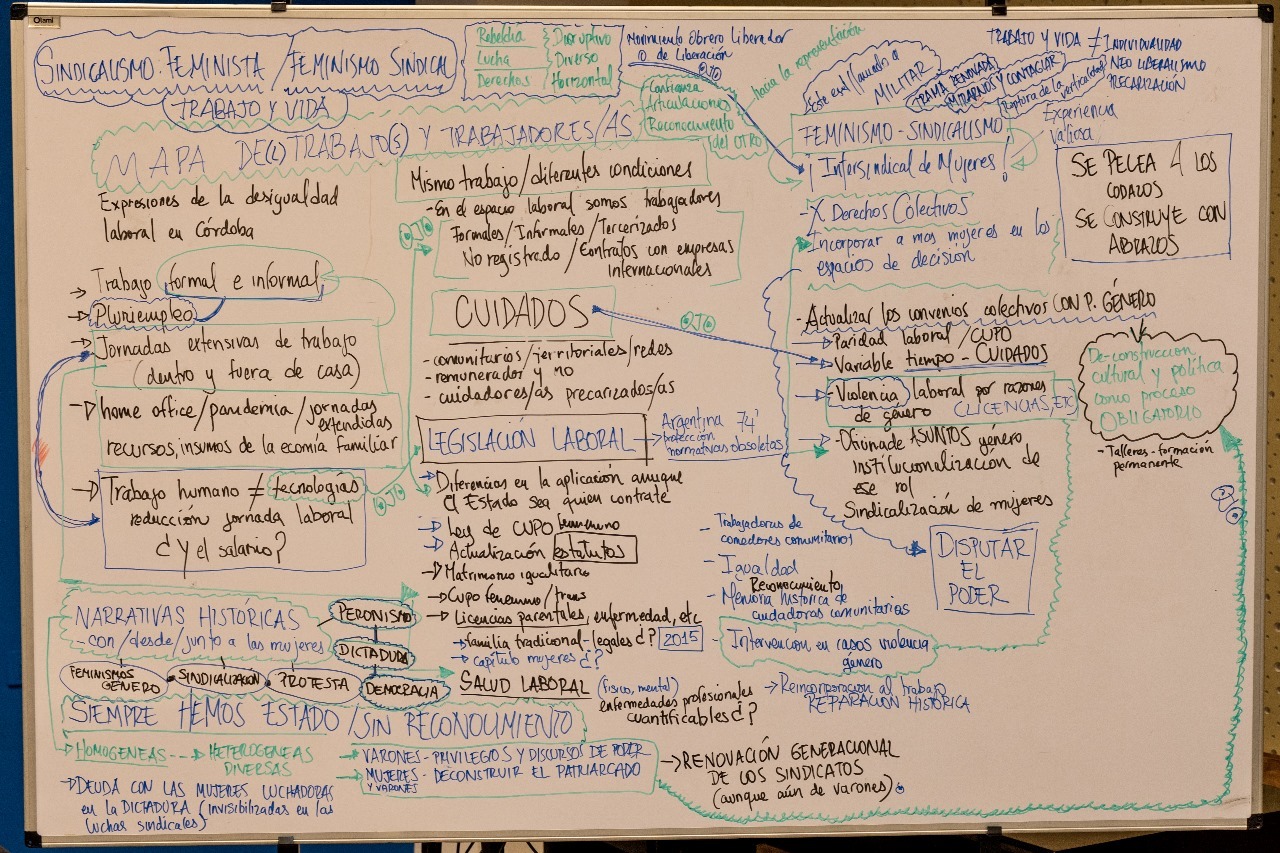 Olami
SINDICALISMO FEMINISTA / FEMINISMO SINDICAL
TRABAJO Y VIDA
Rebeldía
Lucha
Derechos
Disruptivo
Diverso
Horizontal
Movimiento Obrero Liberador
O de Liberación
OJO
Confianza
Articulaciones
Reconocimiento
del OTRO
hacia la representación
Este es el llamado a
MILITAR
TRAMA RENOVADA
MIRARNOS Y CONTAGIAR
Ruptura de la verticalidad
TRABAJO Y VIDA ≠ INDIVIDUALIDAD
NEO LIBERALISMO
PRECARIZACIÓN
Experiencia
Valiosa
MAPA DE(L) TRABAJO(S) Y TRABAJADORES/AS
Expresiones de la desigualdad
laboral en Córdoba
→ Trabajo formal e informal
→ Pluriempleo
→ Jornadas extensivas de trabajo
(dentro y fuera de casa)
→ home office/pandemia/jornadas
extendidas
recursos, insumos de la ecomía familiar
→ Trabajo humano ≠ tecnologías
reducción jornada laboral
¿Y el salario?
OJO
Mismo trabajo/diferentes condiciones
- En el espacio laboral somos trabajadores
Formales/Informales/Tercerizados
No registrado/Contratos con empresas
internacionales
OJO
CUIDADOS
OJO
- comunitarios/territoriales/redes
- remunerador y no
- cuidadores/as precarizados/as
LEGISLACIÓN LABORAL → Argentina 74'
protección
normativas obsoletas
→ Diferencias en la aplicación aunque
el Estado sea quien contrate
→ Ley de CUPO femenino
→ Actualización estatutos
→ Matrimonio igualitario
→ Cupo femenino/trans
→ Licencias parentales, enfermedad, etc
→ familia tradicional - legales ¿? 2015
→ capítulo mujeres ¿?
SALUD LABORAL (físico, mental)
enfermedades profesionales
cuantificables ¿?
FEMINISMO - SINDICALISMO
¡Intersindical de Mujeres!
- X Derechos Colectivos
- Incorporar a mas mujeres en los
espacios de decisión
SE PELEA A LOS
CODAZOS
SE CONSTRUYE CON
ABRAZOS
- Actualizar los convenios colectivos CON P. GÉNERO
→ Paridad laboral/CUPO
→ Variable tiempo - CUIDADOS
→ Violencia laboral por razones
de género
(LICENCIAS, ETC)
→ ASUNTOS género
institucionalización de
ese rol
Sindicalización de mujeres
De-construccion
cultural y política
como proceso
OBLIGATORIO
- Talleres - formación
permanente
OJO
- Trabajadoras de
comedores comunitarios
- Igualdad
Reconocimiento,
- Memoria histórica de
cuidadoras comunitarias
DISPUTAR
EL
PODER
- Intervención en casos violencia
género
→ Reincorporación al trabajo
REPARACIÓN HISTÓRICA
NARRATIVAS HISTÓRICAS
- con/desde/junto a las mujeres
PERONISMO
DICTADURA
DEMOCRACIA
FEMINISMOS
GÉNERO
SINDICALIZACIÓN
PROTESTA
SIEMPRE HEMOS ESTADO/SIN RECONOCIMIENTO
→ HOMOGENEAS --→ HETEROGENEAS
DIVERSAS
→ VARONES - PRIVILEGIOS Y DISCURSOS DE PODER
→ MUJERES - DECONSTRUIR EL PATRIARCADO
Y VARONES
→ RENOVACIÓN GENERACIONAL
DE LOS SINDICATOS
(aunque aún de varones)
→ DEUDA CON LAS MUJERES LUCHADORAS
en la DICTADURA (invisibilizadas en las
luchas sindicales)